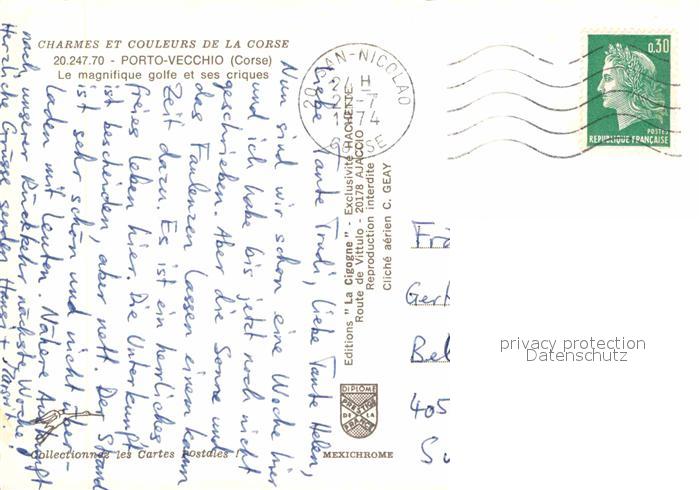 CHARMES ET COULEURS DE LA CORSE
20.247.70 - PORTO-VECCHIO (Corse)
Le magnifique golfe et ses criques
Liebe Tante Trudi, liebe Tante Helen,
Nun sind wir schon eine Woche hier
und ich habe bis jetzt noch nicht
geschrieben. Aber die Sonne und
das Faulenzen lassen einem kaum
Zeit dazu. Es ist ein herrliches,
freies Leben hier. Die Unterkunft
ist bescheiden, aber nett. Der Strand
ist sehr schön und nicht über-
laden mit Leuten. Nähere Auskunft
nach unserer Rückkehr nächste Woche!
Herzliche Grüsse senden Hansit
Editions "La Cigogne" - Exclusivité HACHETTE
Route de Vittulo - 20178 AJACCIO
Reproduction interdite
Cliché aérien C. GEAY
DIPLOME
PRESTIGE
DE LA
FRANCE
MEXICHROME
Collectionnez les Cartes Postales !
20 SAN-NICOLAO
24 H
2-7
1974
CORSE
0,30
POSTES
REPUBLIQUE FRANÇAISE
Fra
Gert
Bel
405
privacy protection
Datenschutz